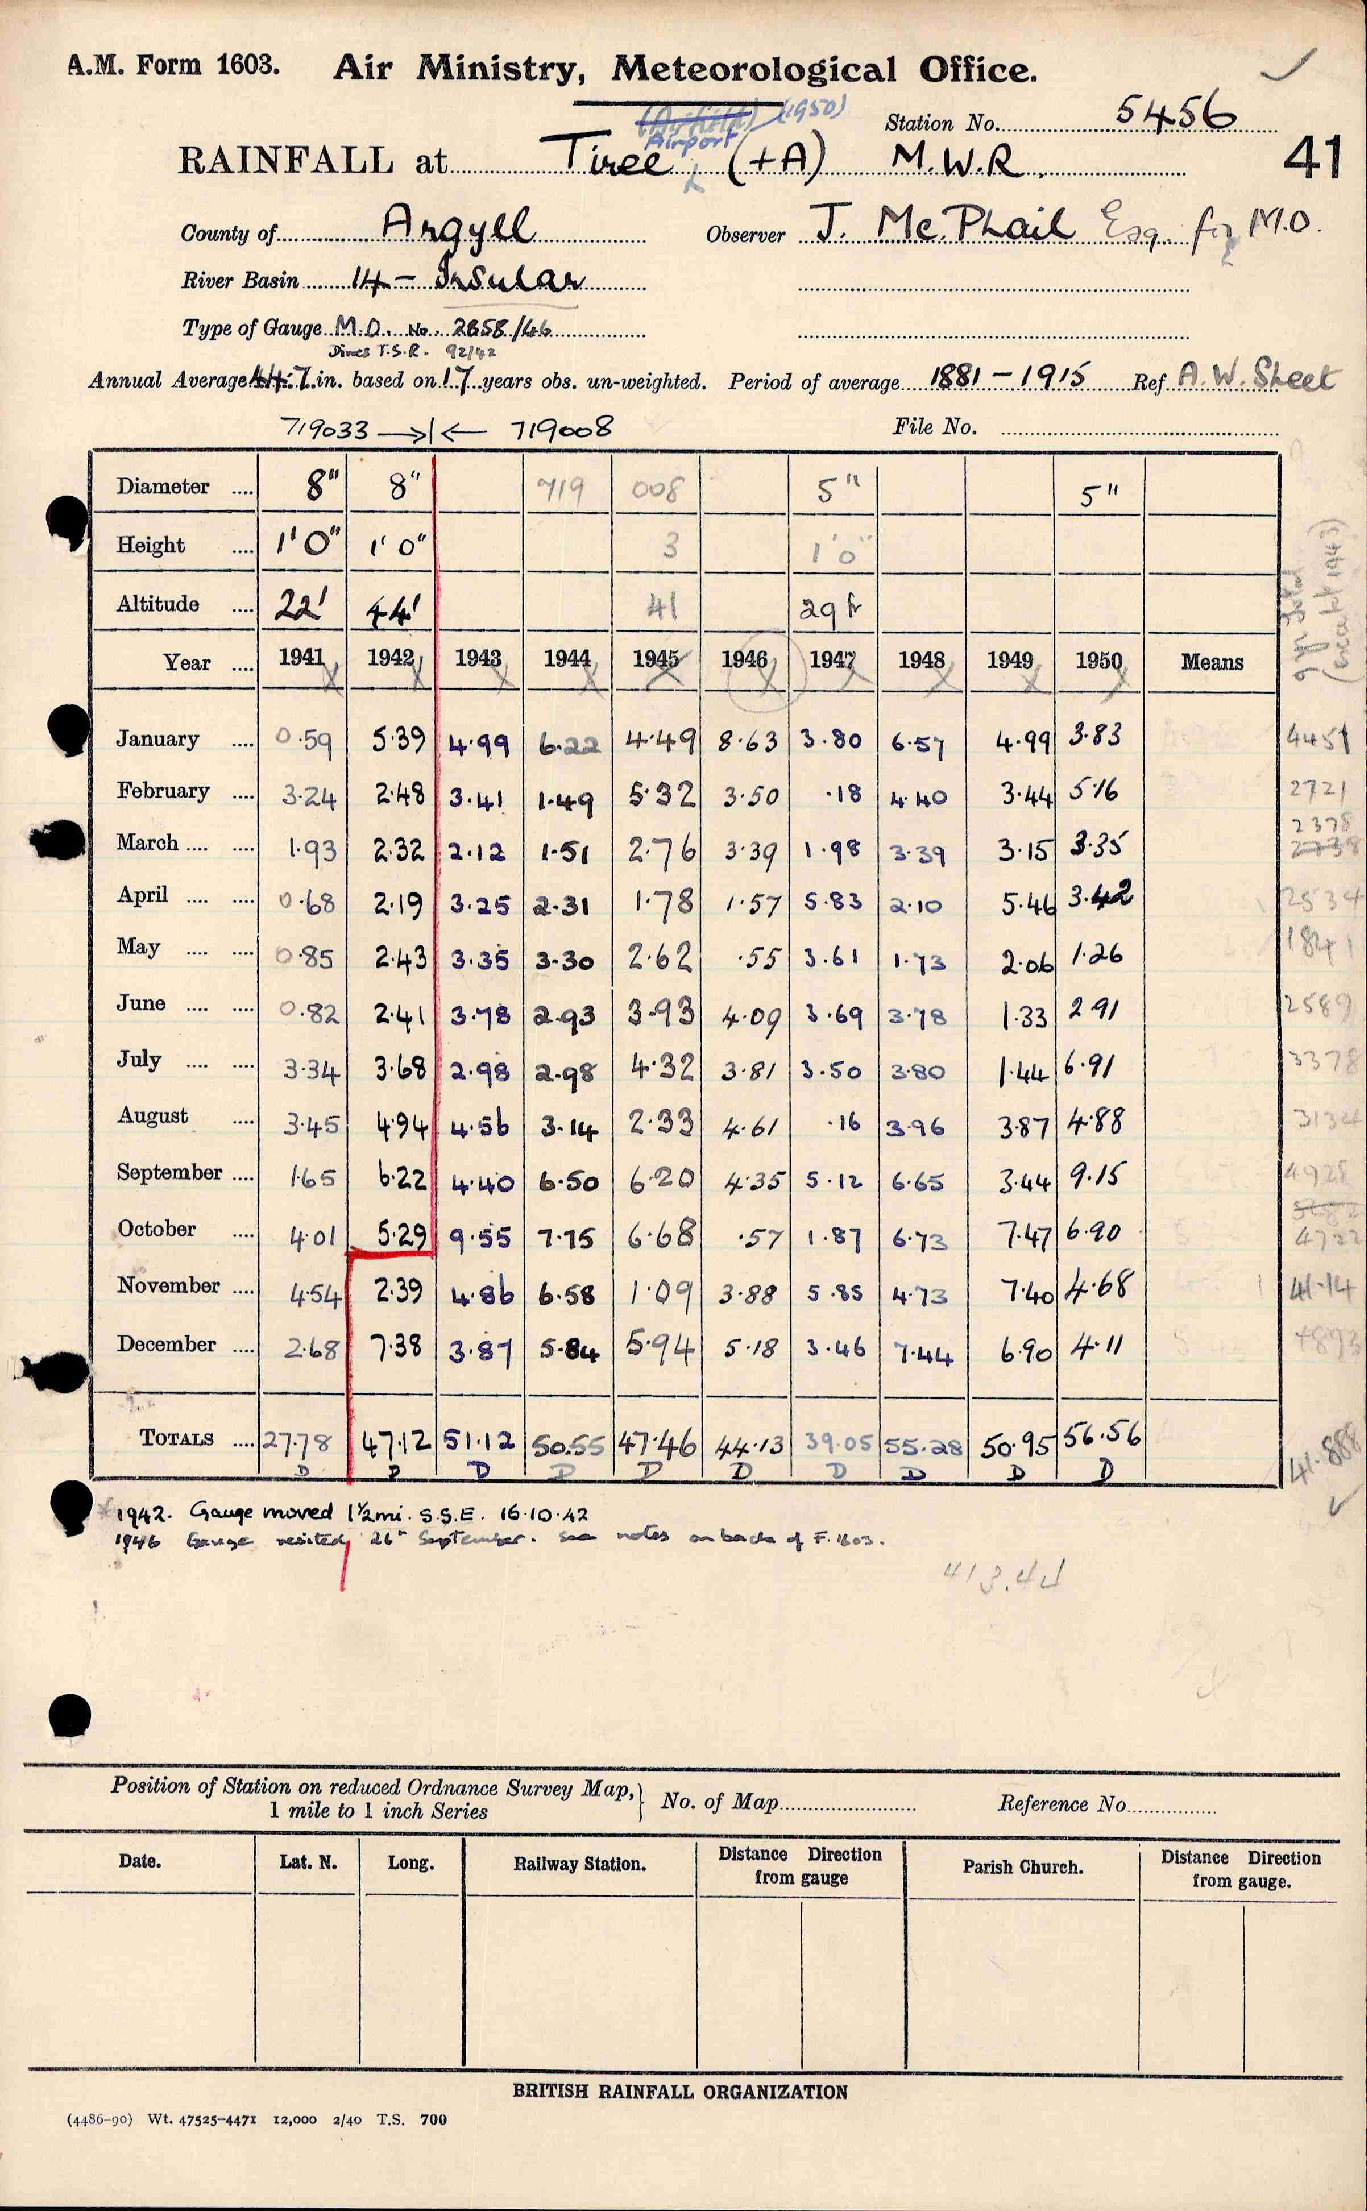 A.M. Form 1603. Air Ministry, Meteorological Office.
(Airfield) (1950)
Station No. 5456
Airport
RAINFALL at Tiree (+A) M.W.R. 41
County of Argyll Observer J. McPhail Esq. for M.O.
River Basin 14 – Insular
Type of Gauge M.O. No. 2658/46
Dines T.S.R. 92/42
Annual Average 44.7 in. based on 17 years obs. un-weighted. Period of average 1881–1915 Ref A.W. Sheet
719033 →|← 719008 File No.
Diameter 8" 8" 719 008 5" 5"
Height 1'0" 1'0" 3 1'0"
Altitude 22' 44' 41 29 ft
Year 1941 1942 1943 1944 1945 1946 1947 1948 1949 1950 Means
January 0.59 5.39 4.99 6.22 4.49 8.63 3.80 6.57 4.99 3.83 4451
February 3.24 2.48 3.41 1.49 5.32 3.50 .18 4.40 3.44 5.16 2721
2378
March 1.93 2.32 2.12 1.51 2.76 3.39 1.98 3.39 3.15 3.35 2738
April 0.68 2.19 3.25 2.31 1.78 1.57 5.83 2.10 5.46 3.42 2534
May 0.85 2.43 3.35 3.30 2.62 .55 3.61 1.73 2.06 1.26 1841
June 0.82 2.41 3.78 2.93 3.93 4.09 3.69 3.78 1.33 2.91 2589
July 3.34 3.68 2.98 2.98 4.32 3.81 3.50 3.80 1.44 6.91 3378
August 3.45 4.94 4.56 3.14 2.33 4.61 .16 3.96 3.87 4.88 3134
September 1.65 6.22 4.40 6.50 6.20 4.35 5.12 6.65 3.44 9.15 4928
October 4.01 5.29 9.55 7.75 6.68 .57 1.87 6.73 7.47 6.90 4722
November 4.54 2.39 4.86 6.58 1.09 3.88 5.85 4.73 7.40 4.68 41.14
December 2.68 7.38 3.87 5.84 5.94 5.18 3.46 7.44 6.90 4.11 4893
TOTALS 27.78 47.12 51.12 50.55 47.46 44.13 39.05 55.28 50.95 56.56 41.888
D D D D D D D D D D
1942. Gauge moved 1½ mi. S.S.E. 16.10.42
1946 Gauge resited, 26th September. See notes on back of F.1603.
413.44
Position of Station on reduced Ordnance Survey Map, 1 mile to 1 inch Series No. of Map Reference No.
Date. Lat. N. Long. Railway Station. Distance Direction from gauge Parish Church. Distance Direction from gauge.
BRITISH RAINFALL ORGANIZATION
(4486–90) Wt. 47525–4471 12,000 2/40 T.S. 700